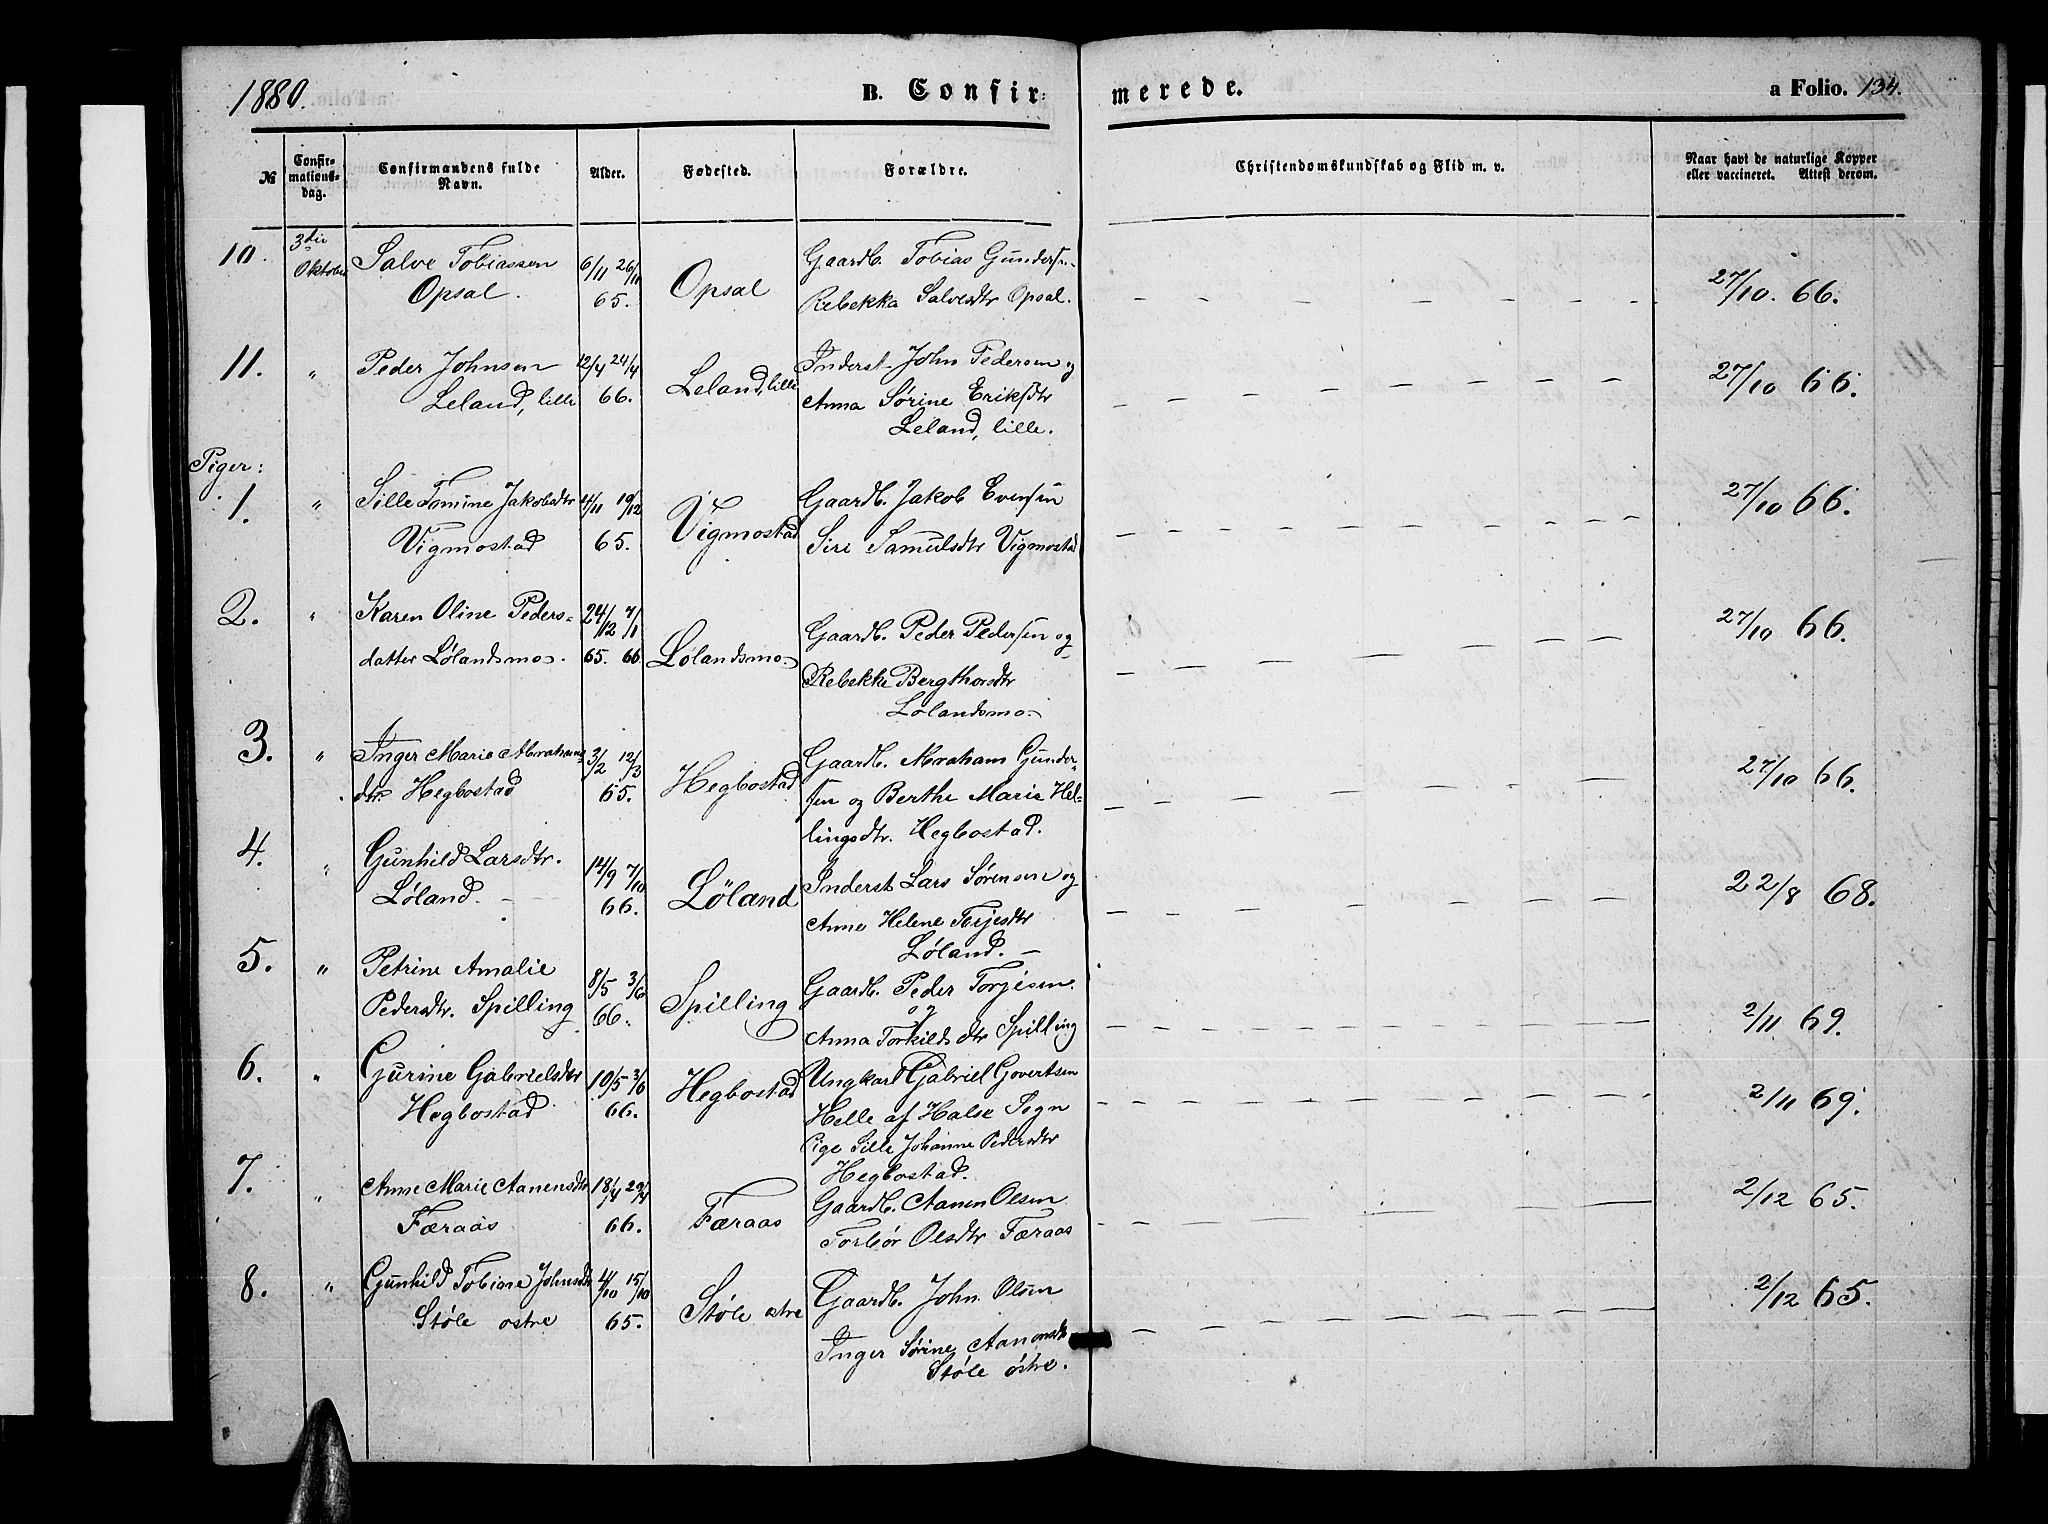 1880.
B. Confir-
merede.
a Folio. 134.
№
Confir-
mations-
dag.
Confirmandens fulde
Navn.
Alder.
Fødested.
Forældre.
Christendomskundskab og Flid m. v.
Naar havt de naturlige Kopper
eller vaccineret. Attest derom.
10. 3die Oktober Salve Tobiassen 6/11 26/11 Opsal Gaardb. Tobias Gundersen
Opsal. 65. Rebekka Salvesdtr Opsal. 27/10. 66.
11. " Peder Johnsen 12/4 24/4 Leland, lille Inderst John Pedersen og 27/10 66.
Leland, lille 66. Anna Sørine Eriksdtr
Leland, lille.
Piger:
1. " Sille Tomine Jakobsdtr 4/11 19/12 Vigmostad Gaardb. Jakob Evensen 27/10 66.
Vigmostad 65. Siri Samulsdtr Vigmostad
2. " Karen Oline Peders- 24/12 7/1 Lølandsmo Gaardb. Peder Pedersen og 27/10 66.
datter Lølandsmo. 65. 66. Rebekke Bergthorsdtr
Lølandsmo
3. " Inger Marie Abrahams- 3/2 12/3 Hegbostad Gaardb. Abraham Gunder- 27/10 66.
dtr. Hegbostad 65. sen og Berthe Marie Hel-
lingsdtr. Hegbostad.
4. " Gunhild Larsdtr. 14/9 7/10 Løland Inderst Lars Sørensen og 22/8 68.
Løland. 66. Anne Helene Torjesdtr
Løland.
5. " Petrine Amalie 8/5 3/6 Spilling Gaardb. Peder Torjesen
og
Pedersdtr. Spilling 66. Anna Torkildsdtr Spilling 2/11 69.
6. " Gurine Gabrielsdtr 10/5 3/6 Hegbostad Ungkarl Gabriel Govertsen
Hegbostad 66. Helle af Halse Sogn 2/11 69.
Pige Sille Johanne Pedersdtr
Hegbostad.
7. " Anne Marie Aanensdtr 18/4 29/4 Færaas Gaardb. Aanen Olsen 2/12 65.
Færaas 66. Torbør Olsdtr Færaas
8. " Gunhild Tobine Johnsdtr 4/10 15/10 Støle østre Gaardb. John Olsen 2/12 65.
Støle østre 65. Inger Sørine Aanonsdtr
Støle østre.